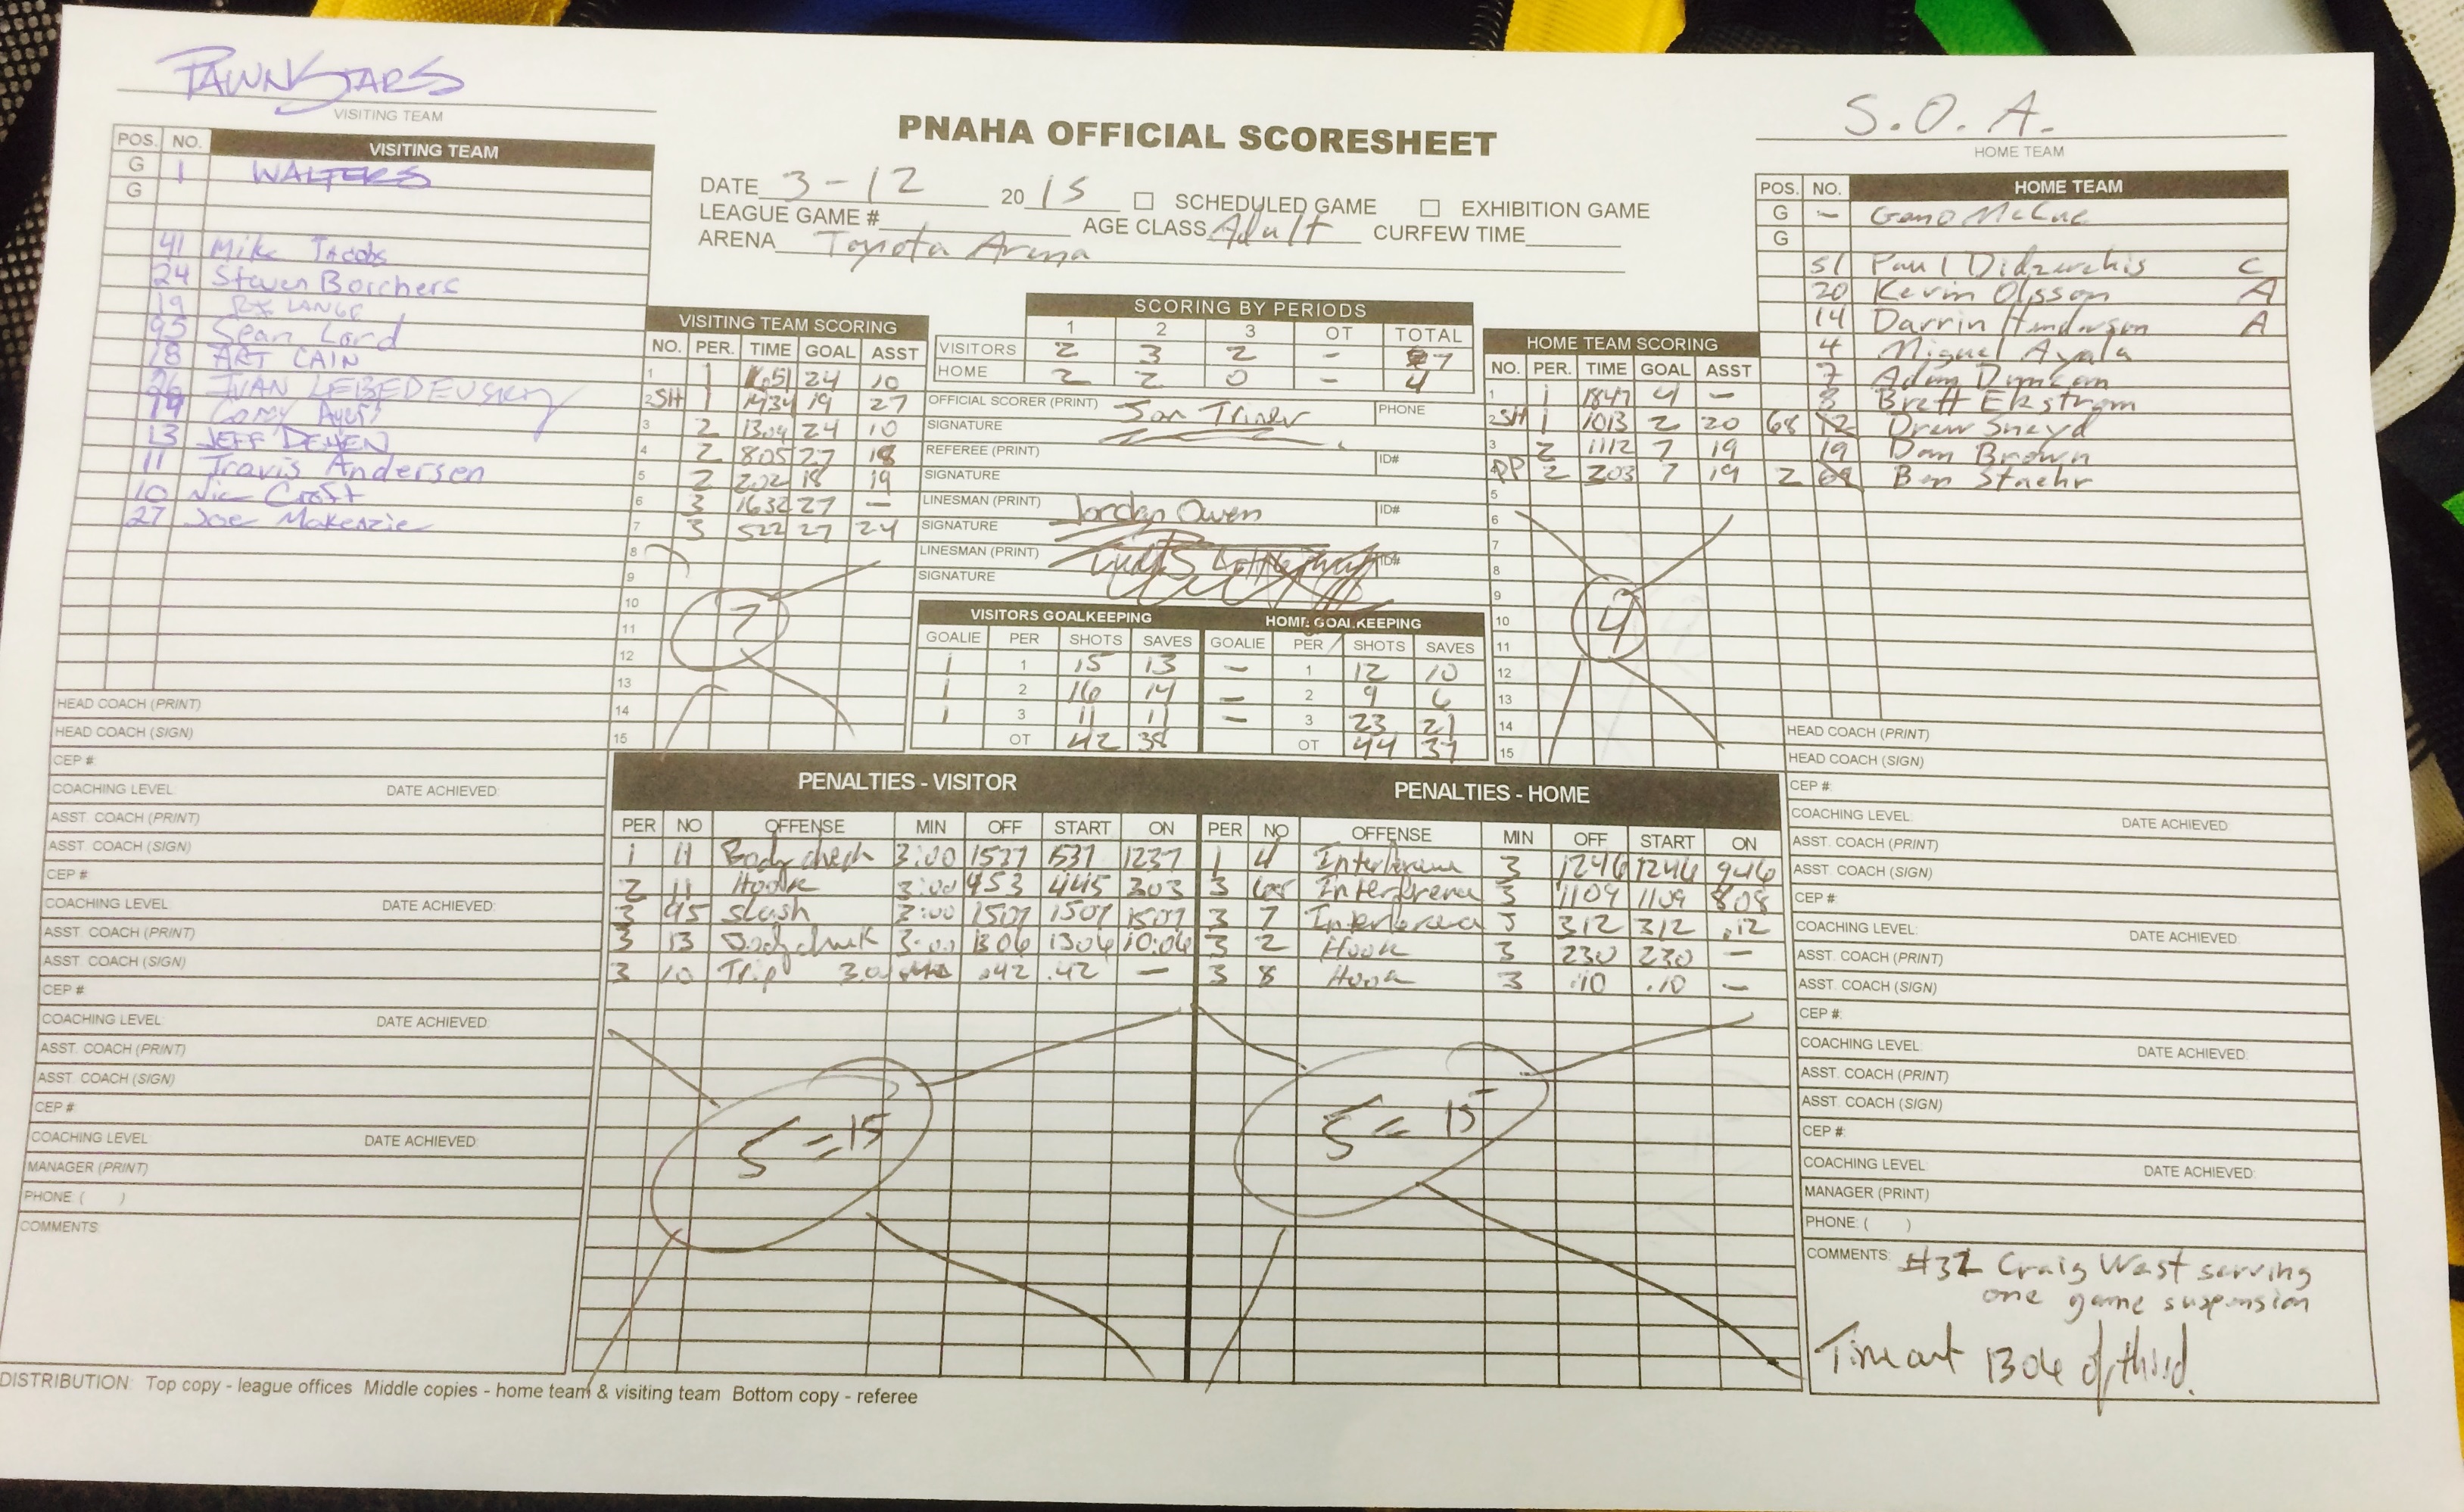 PAWNSTARS
VISITING TEAM
S.O.A.
HOME TEAM
PNAHA OFFICIAL SCORESHEET
DATE 3-12 2015 SCHEDULED GAME EXHIBITION GAME
LEAGUE GAME # AGE CLASS Adult CURFEW TIME
ARENA Toyota Arena
POS. NO. VISITING TEAM
G 1 WALTERS
G
41 Mike Jacobs
24 Steven Borchers
19 LANGE
95 Sean Lord
18 ART CAIN
IVAN LEBEDEVSKY
Corey
13 JEFF DEHEN
11 Travis Andersen
10 Nic Croft
27 Joe Makenzie
HEAD COACH (PRINT)
HEAD COACH (SIGN)
CEP #:
COACHING LEVEL: DATE ACHIEVED:
ASST. COACH (PRINT)
ASST. COACH (SIGN)
CEP #:
COACHING LEVEL: DATE ACHIEVED:
ASST. COACH (PRINT)
ASST. COACH (SIGN)
CEP #:
COACHING LEVEL: DATE ACHIEVED:
ASST. COACH (PRINT)
ASST. COACH (SIGN)
CEP #:
COACHING LEVEL DATE ACHIEVED:
MANAGER (PRINT)
PHONE ( )
COMMENTS:
VISITING TEAM SCORING
NO. PER. TIME GOAL ASST
1 1 1651 24 10
2 SH 1 1434 19 27
3 2 1304 24 10
4 2 805 27 18
5 2 202 18 19
6 3 1632 27 –
7 3 522 27 24
8
9
10
11
12
13
14
15
7
SCORING BY PERIODS
1 2 3 OT TOTAL
VISITORS 2 3 2 - 7
HOME 2 2 0 - 4
OFFICIAL SCORER (PRINT) Jon Triner PHONE
SIGNATURE
REFEREE (PRINT) ID#
SIGNATURE
LINESMAN (PRINT) Jordan Owen ID#
SIGNATURE
LINESMAN (PRINT) ID#
SIGNATURE
VISITORS GOALKEEPING HOME GOALKEEPING
GOALIE PER SHOTS SAVES GOALIE PER SHOTS SAVES
1 1 15 13 – 1 12 10
1 2 16 14 – 2 9 6
1 3 11 11 – 3 23 21
OT 42 38 OT 44 37
HOME TEAM SCORING
NO. PER. TIME GOAL ASST
1 1 1847 4 –
2 SH 1 1013 2 20
3 2 1112 7 19
4 PP 2 203 7 19
5
6
7
8
9
10
11
12
13
14
15
4
POS. NO. HOME TEAM
G – Geno McCue
G
51 Paul C
20 Kevin Olsson A
14 Darrin Henderson A
4 Miguel Ayala
7 Adam Duncan
8 Brett Ekstrom
68 12 Drew Sneyd
19 Dan Brown
2 Ben Staehr
HEAD COACH (PRINT)
HEAD COACH (SIGN)
CEP #:
COACHING LEVEL: DATE ACHIEVED:
ASST. COACH (PRINT)
ASST. COACH (SIGN)
CEP #:
COACHING LEVEL: DATE ACHIEVED:
ASST. COACH (PRINT)
ASST. COACH (SIGN)
CEP #:
COACHING LEVEL: DATE ACHIEVED:
ASST. COACH (PRINT)
ASST. COACH (SIGN)
CEP #:
COACHING LEVEL DATE ACHIEVED:
MANAGER (PRINT)
PHONE: ( )
COMMENTS: #32 Craig West serving
one game suspension
Time out 1306 of third.
PENALTIES - VISITOR
PER NO OFFENSE MIN OFF START ON
1 11 Body check 3:00 1537 1537 1237
2 11 Hook 3:00 953 445 303
3 95 Slash 3:00 1507 1507 1507
3 13 Bodycheck 3:00 1306 1306 10:06
3 10 Trip 3:0 .42 .42 –
5 = 15
PENALTIES - HOME
PER NO OFFENSE MIN OFF START ON
1 4 Interference 3 1246 1246 946
3 68 Interference 3 1109 1109 808
3 7 Interference 3 312 312 .12
3 2 Hook 3 230 230 –
3 8 Hook 3 .10 .10 –
5 = 15
DISTRIBUTION: Top copy - league offices Middle copies - home team & visiting team Bottom copy - referee